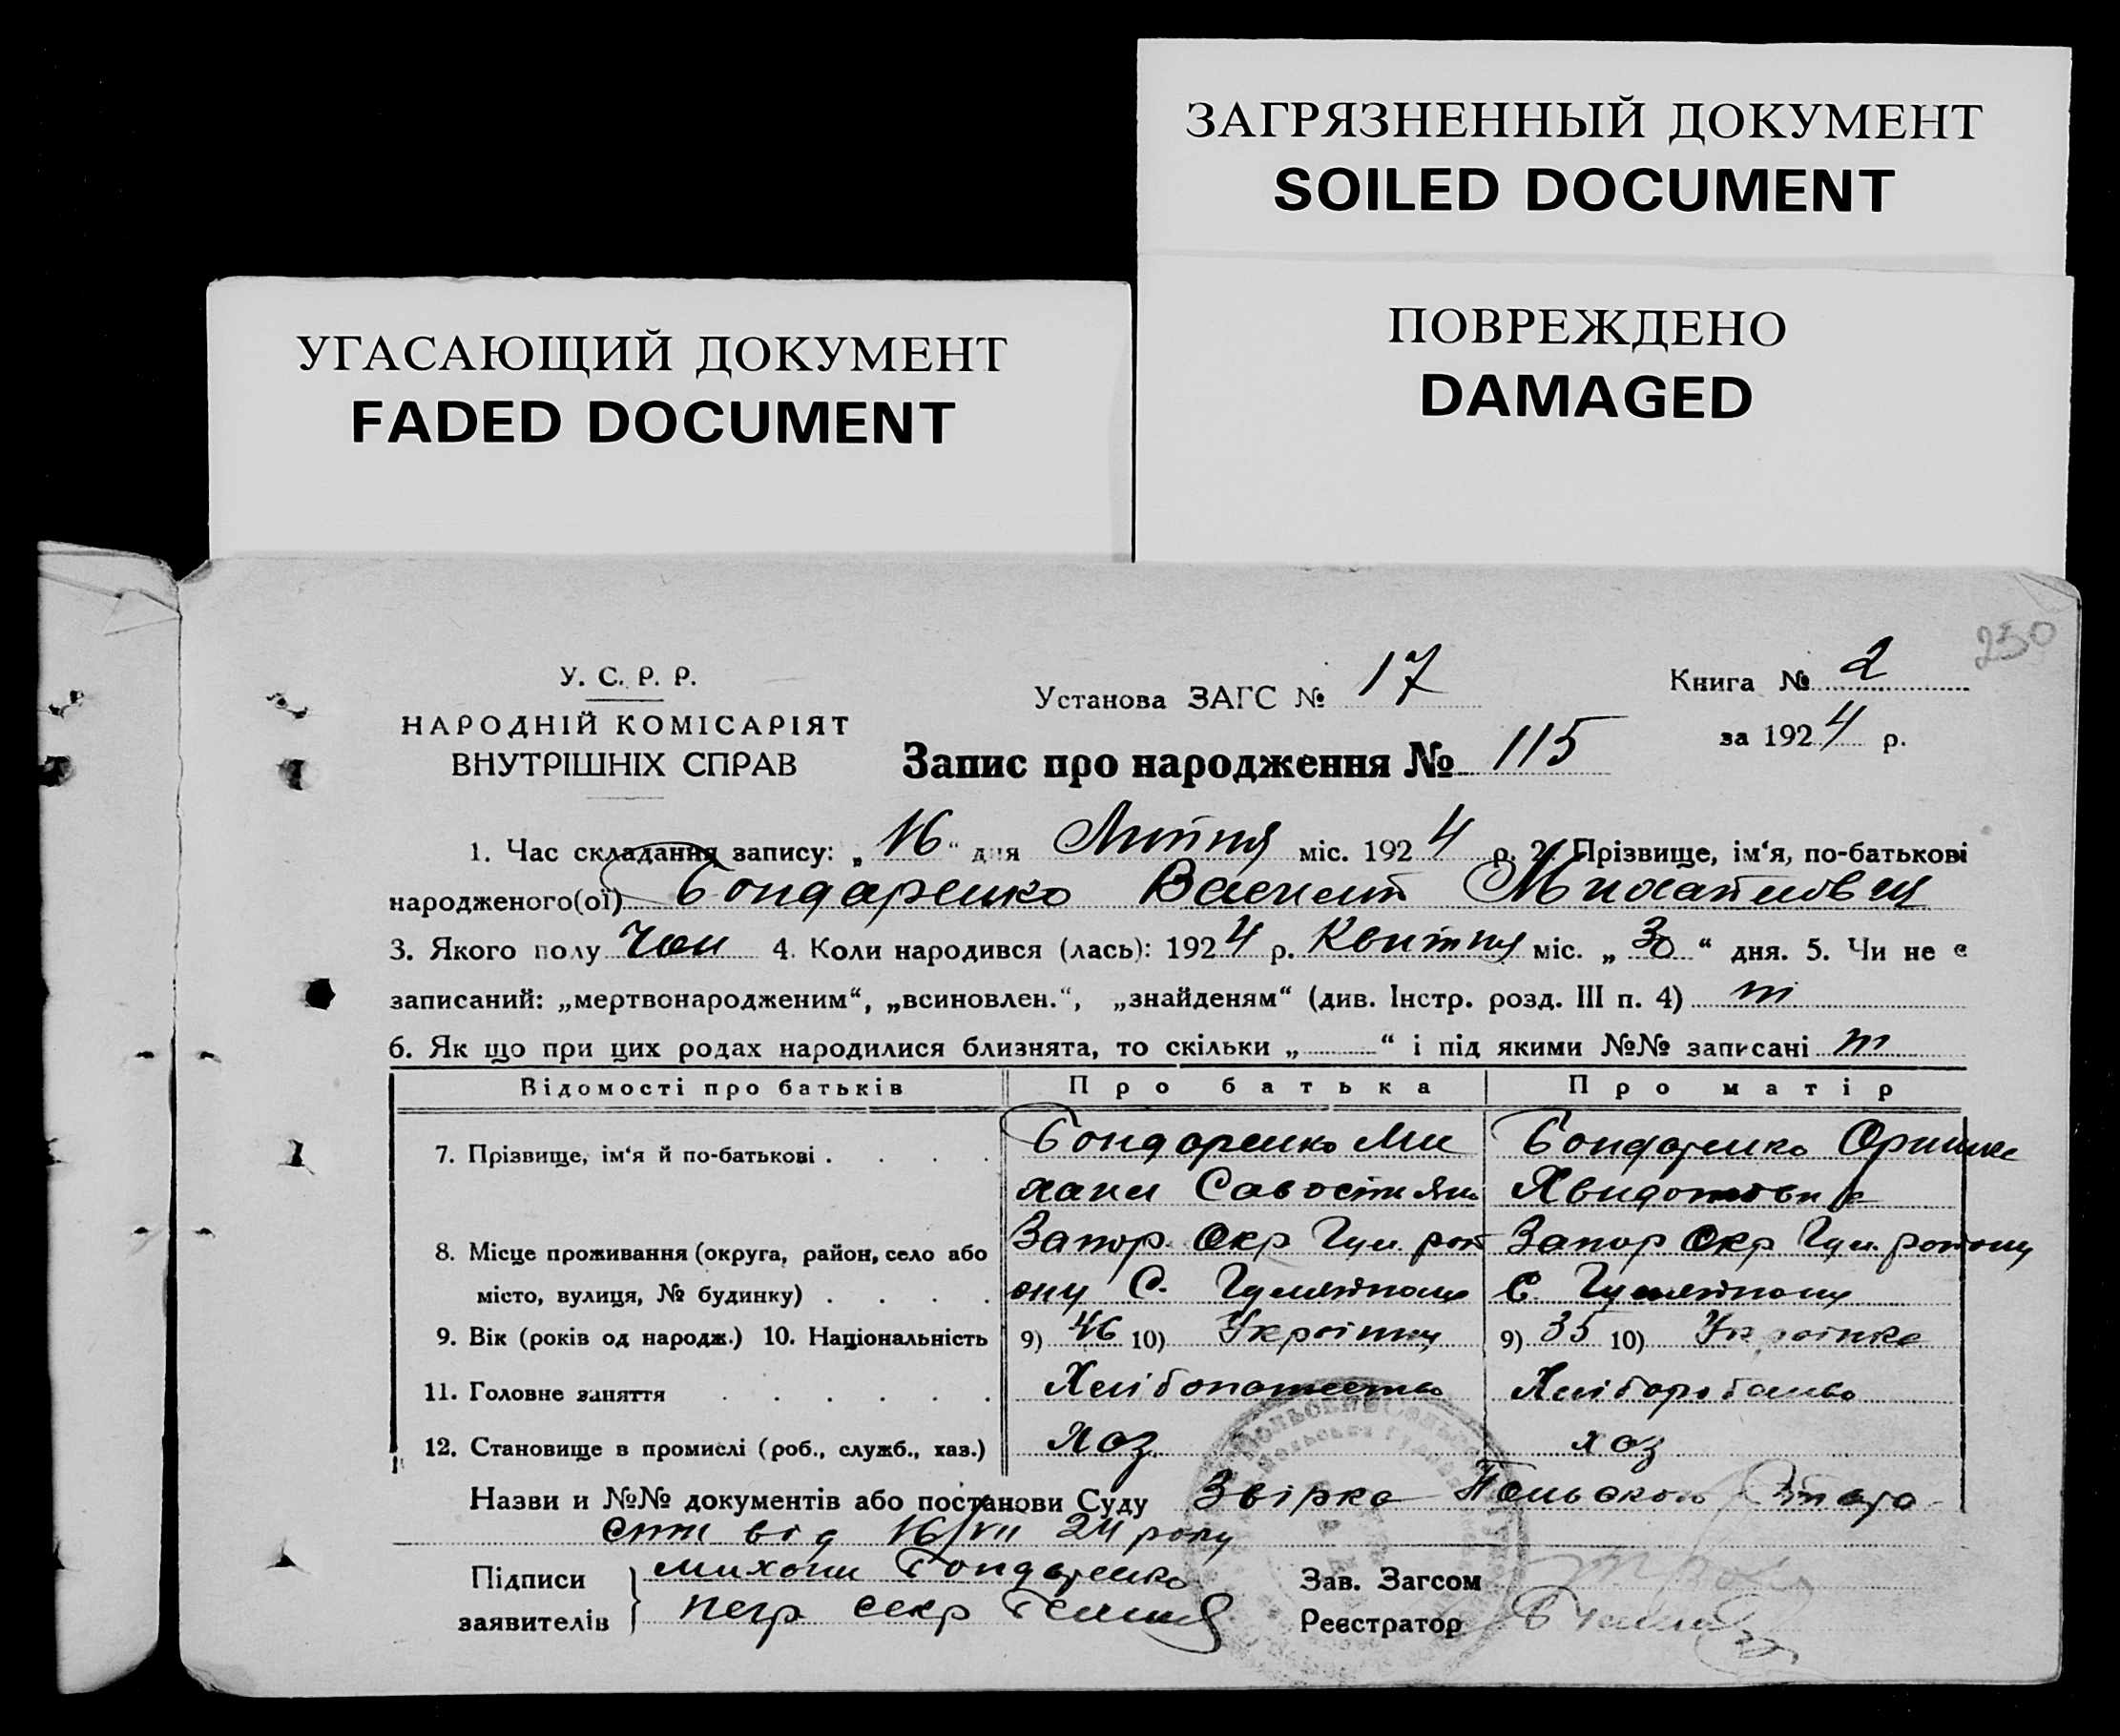 ЗАГРЯЗНЕННЫЙ ДОКУМЕНТ
SOILED DOCUMENT
ПОВРЕЖДЕНО
DAMAGED
УГАСАЮЩИЙ ДОКУМЕНТ
FADED DOCUMENT
250
У. С. Р. Р.
НАРОДНІЙ КОМІСАРІЯТ
ВНУТРІШНІХ СПРАВ
Установа ЗАГС № 17
Книга № 2
за 1924 р.
Запис про народження № 115
1. Час складання запису: „16“ дня Липня міс. 1924 р. 2. Прізвище, ім‘я, по-батькові
народженого(ої) Бондаренко Василь Михайлович
3. Якого полу Чол 4. Коли народився (лась): 1924 р. Квітня міс. „30“ дня. 5. Чи не є
записаний: „мертвонародженим“, „всиновлен.“, „знайденям“ (див. Інстр. розд. III п. 4) ні
6. Як що при цих родах народилися близнята, то скільки „ “ і під якими №№ записані ні
Відомості про батьків Про батька Про матір
7. Прізвище, ім‘я й по-батькові . . . . Бондаренко Ми Бондаренко Оришка
хайил Савостян
8. Місце проживання (округа, район, село або Запор. Окр Гул. рай Запор Окр Гул. районц
місто, вулиця, № будинку) . . . . ону С. Гуляйполе С. Гуляйполе
9. Вік (років од народж.) 10. Національність 9) 46 10) Українец 9) 35 10) Українка
11. Головне заняття . . . . . . Хліборобство
12. Становище в промислі (роб., служб., хаз.) Хаз хаз
Назви и №№ документів або постанови Суду Звірка
від 16/VII 24 року
Підписи заявителів Михайил Бондаренко
секр
Зав. Загсом
Реєстратор